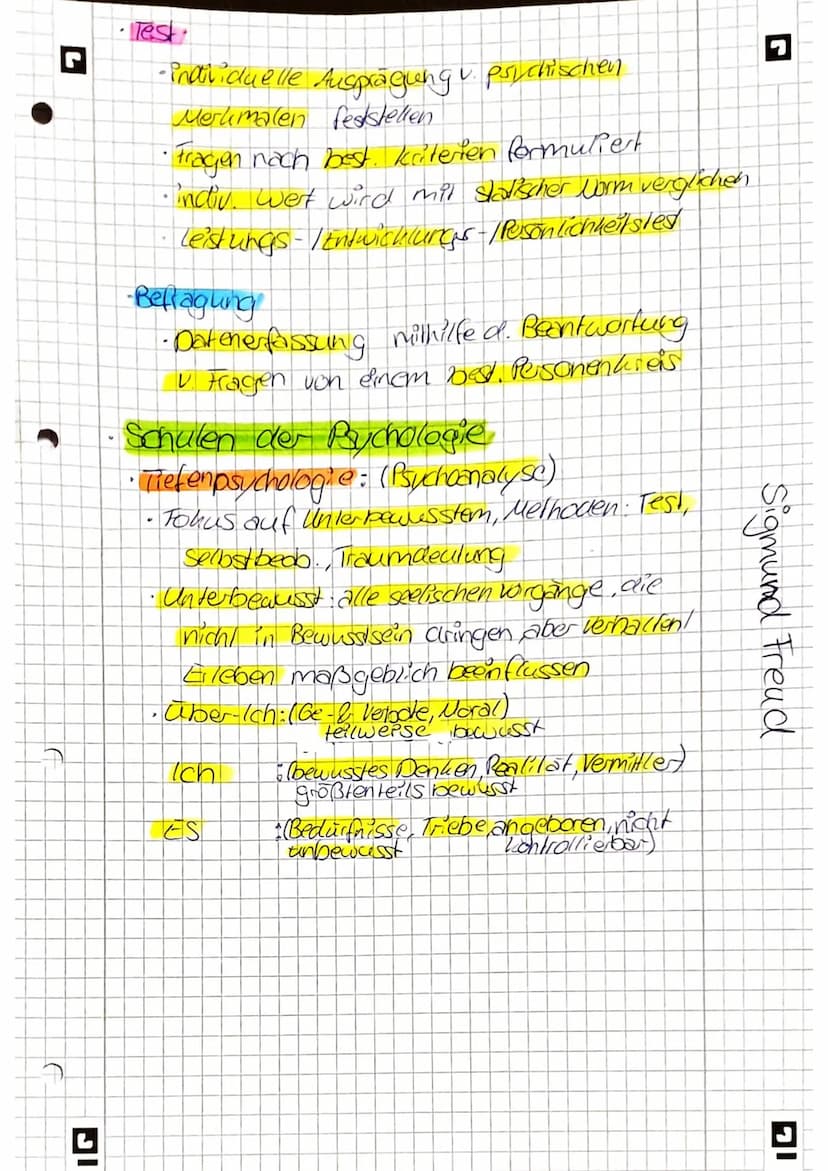 · Test:
· individuelle Ausprägung v. psychischen
Merkmalen feststellen
· Fragen nach best. Kriterien formuliert
· indiv. Wert wird mit statischer Norm verglichen
· Leistungs-/Entwicklungs-/Persönlichkeitstest
· Befragung
· Datenerfassung mithilfe d. Beantwortung
v. Fragen von einem best. Personenkreis
· Schulen der Psychologie
· Tiefenpsychologie: (Psychoanalyse)
· Fokus auf Unterbewusstem, Methoden: Test,
Selbstbeob., Traumdeutung
· Unterbewusst: alle seelischen Vorgänge, die
nicht in Bewusstsein dringen, aber Verhalten/
Erleben maßgeblich beeinflussen
· Über-Ich: (Ge- & Verbote, Moral)
teilweise bewusst
Ich : (bewusstes Denken, Realität, Vermittler)
größtenteils bewusst
ES : (Bedürfnisse, Triebe, angeboren, nicht
unbewusst kontrollierbar)
Sigmund Freud